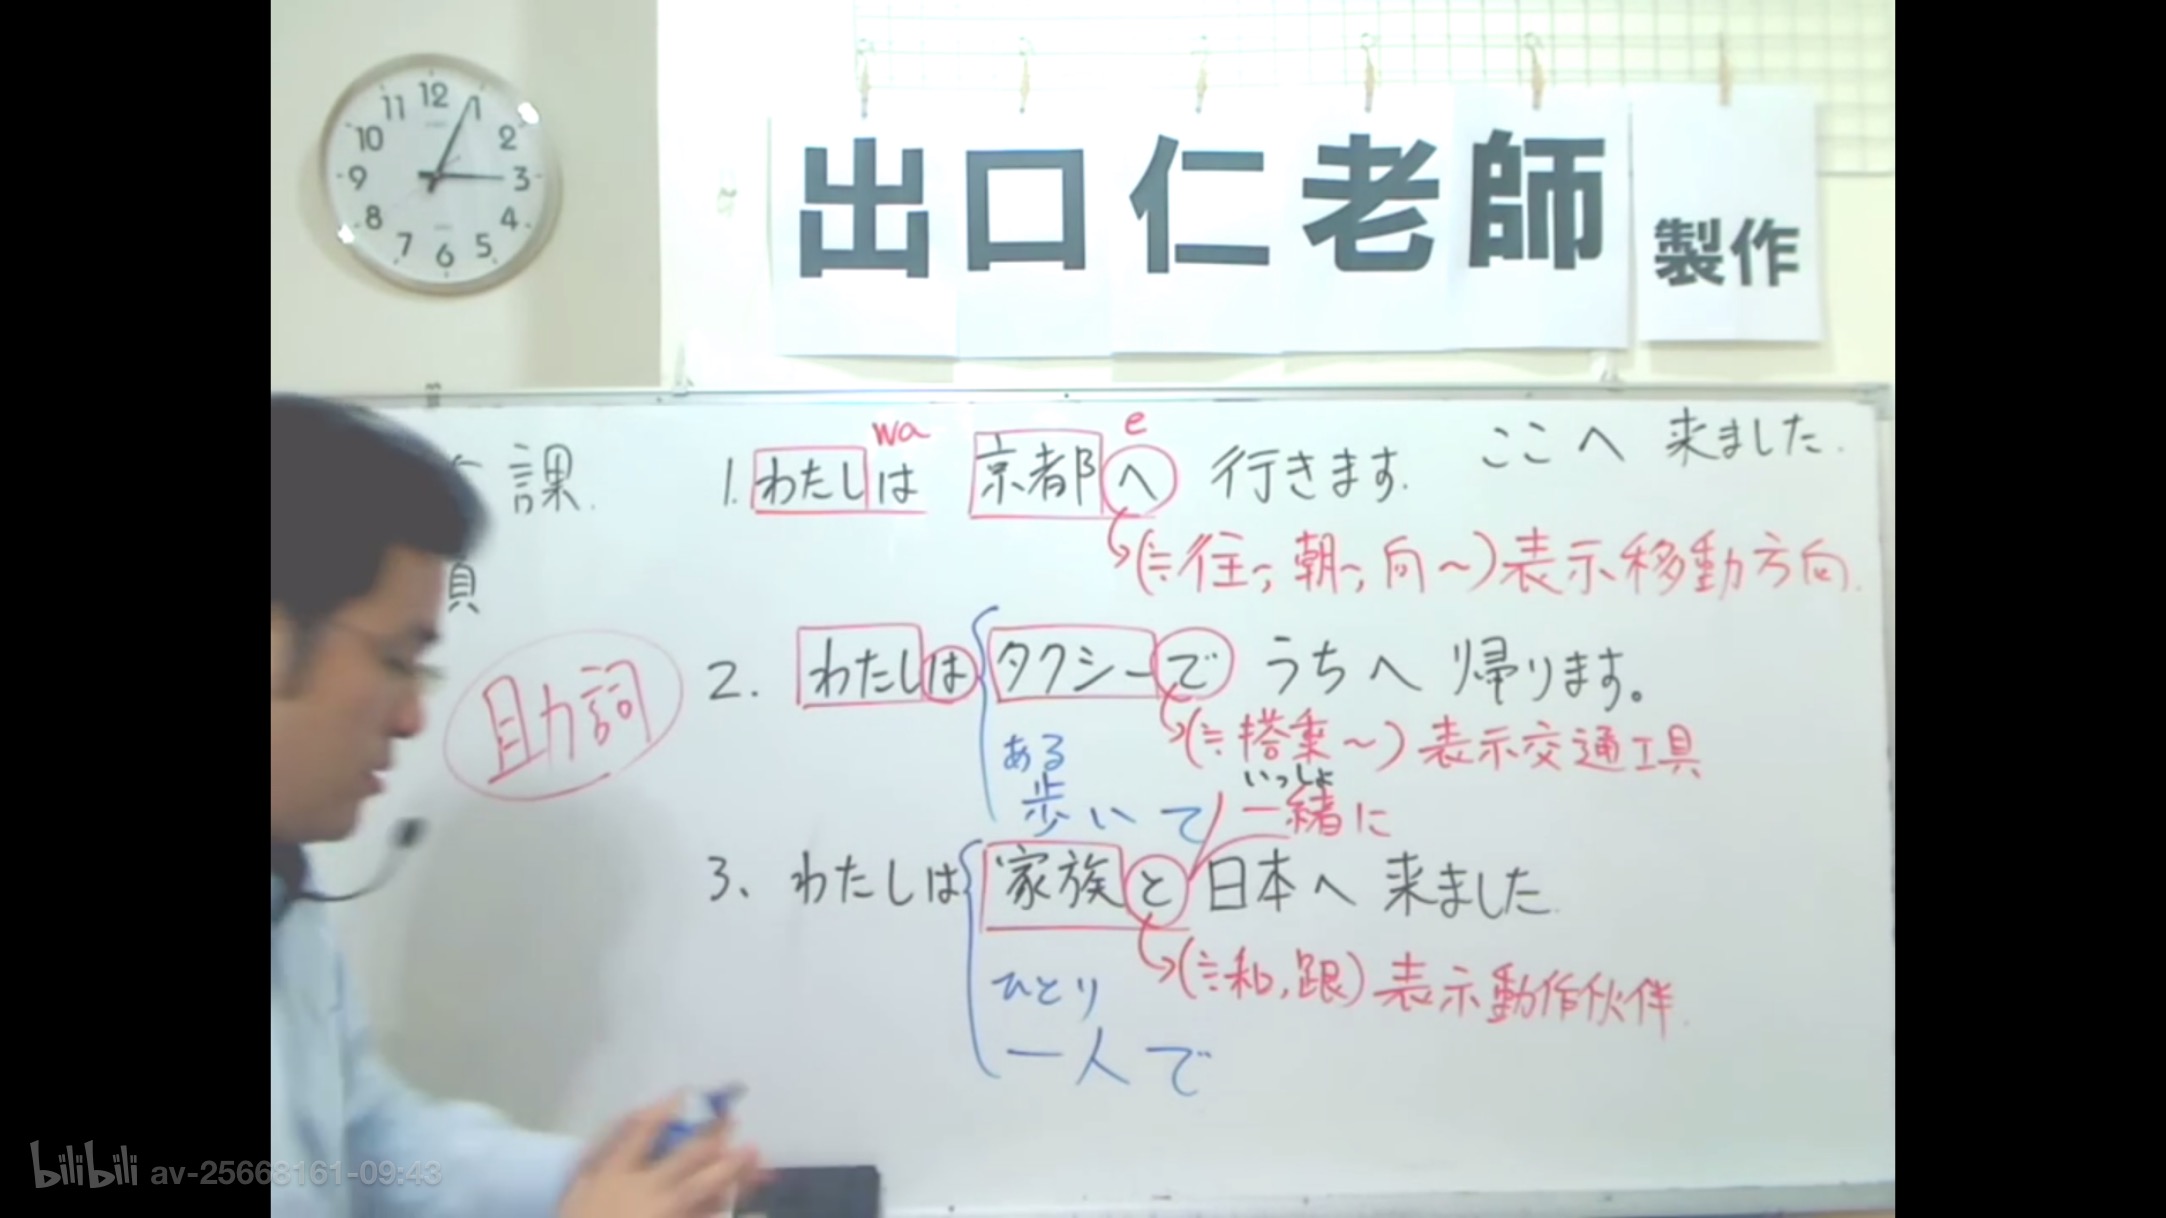 12
11 1
10 2
9 3
8 4
7 5
6
出口仁老師 製作
課.
頁
助詞
wa e
1. わたしは 京都へ 行きます. ここへ 来ました.
(≒往~, 朝~, 向~) 表示移動方向.
2. わたしは タクシーで うちへ 帰ります。
(≒搭乗~) 表示交通工具
ある
歩いて
いっしょ
一緒に
3、 わたしは 家族と 日本へ 来ました.
(≒和, 跟) 表示動作伙伴.
ひとり
一人で
bilibili av-25663161-09:43